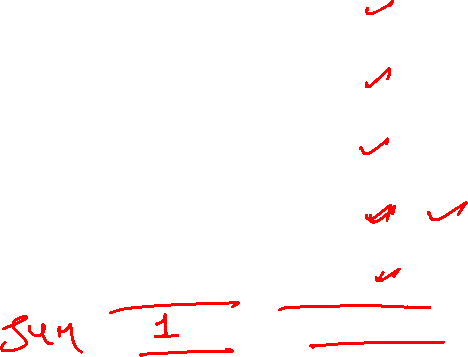 ✓
✓
✓
✓ ✓
✓
sum 1